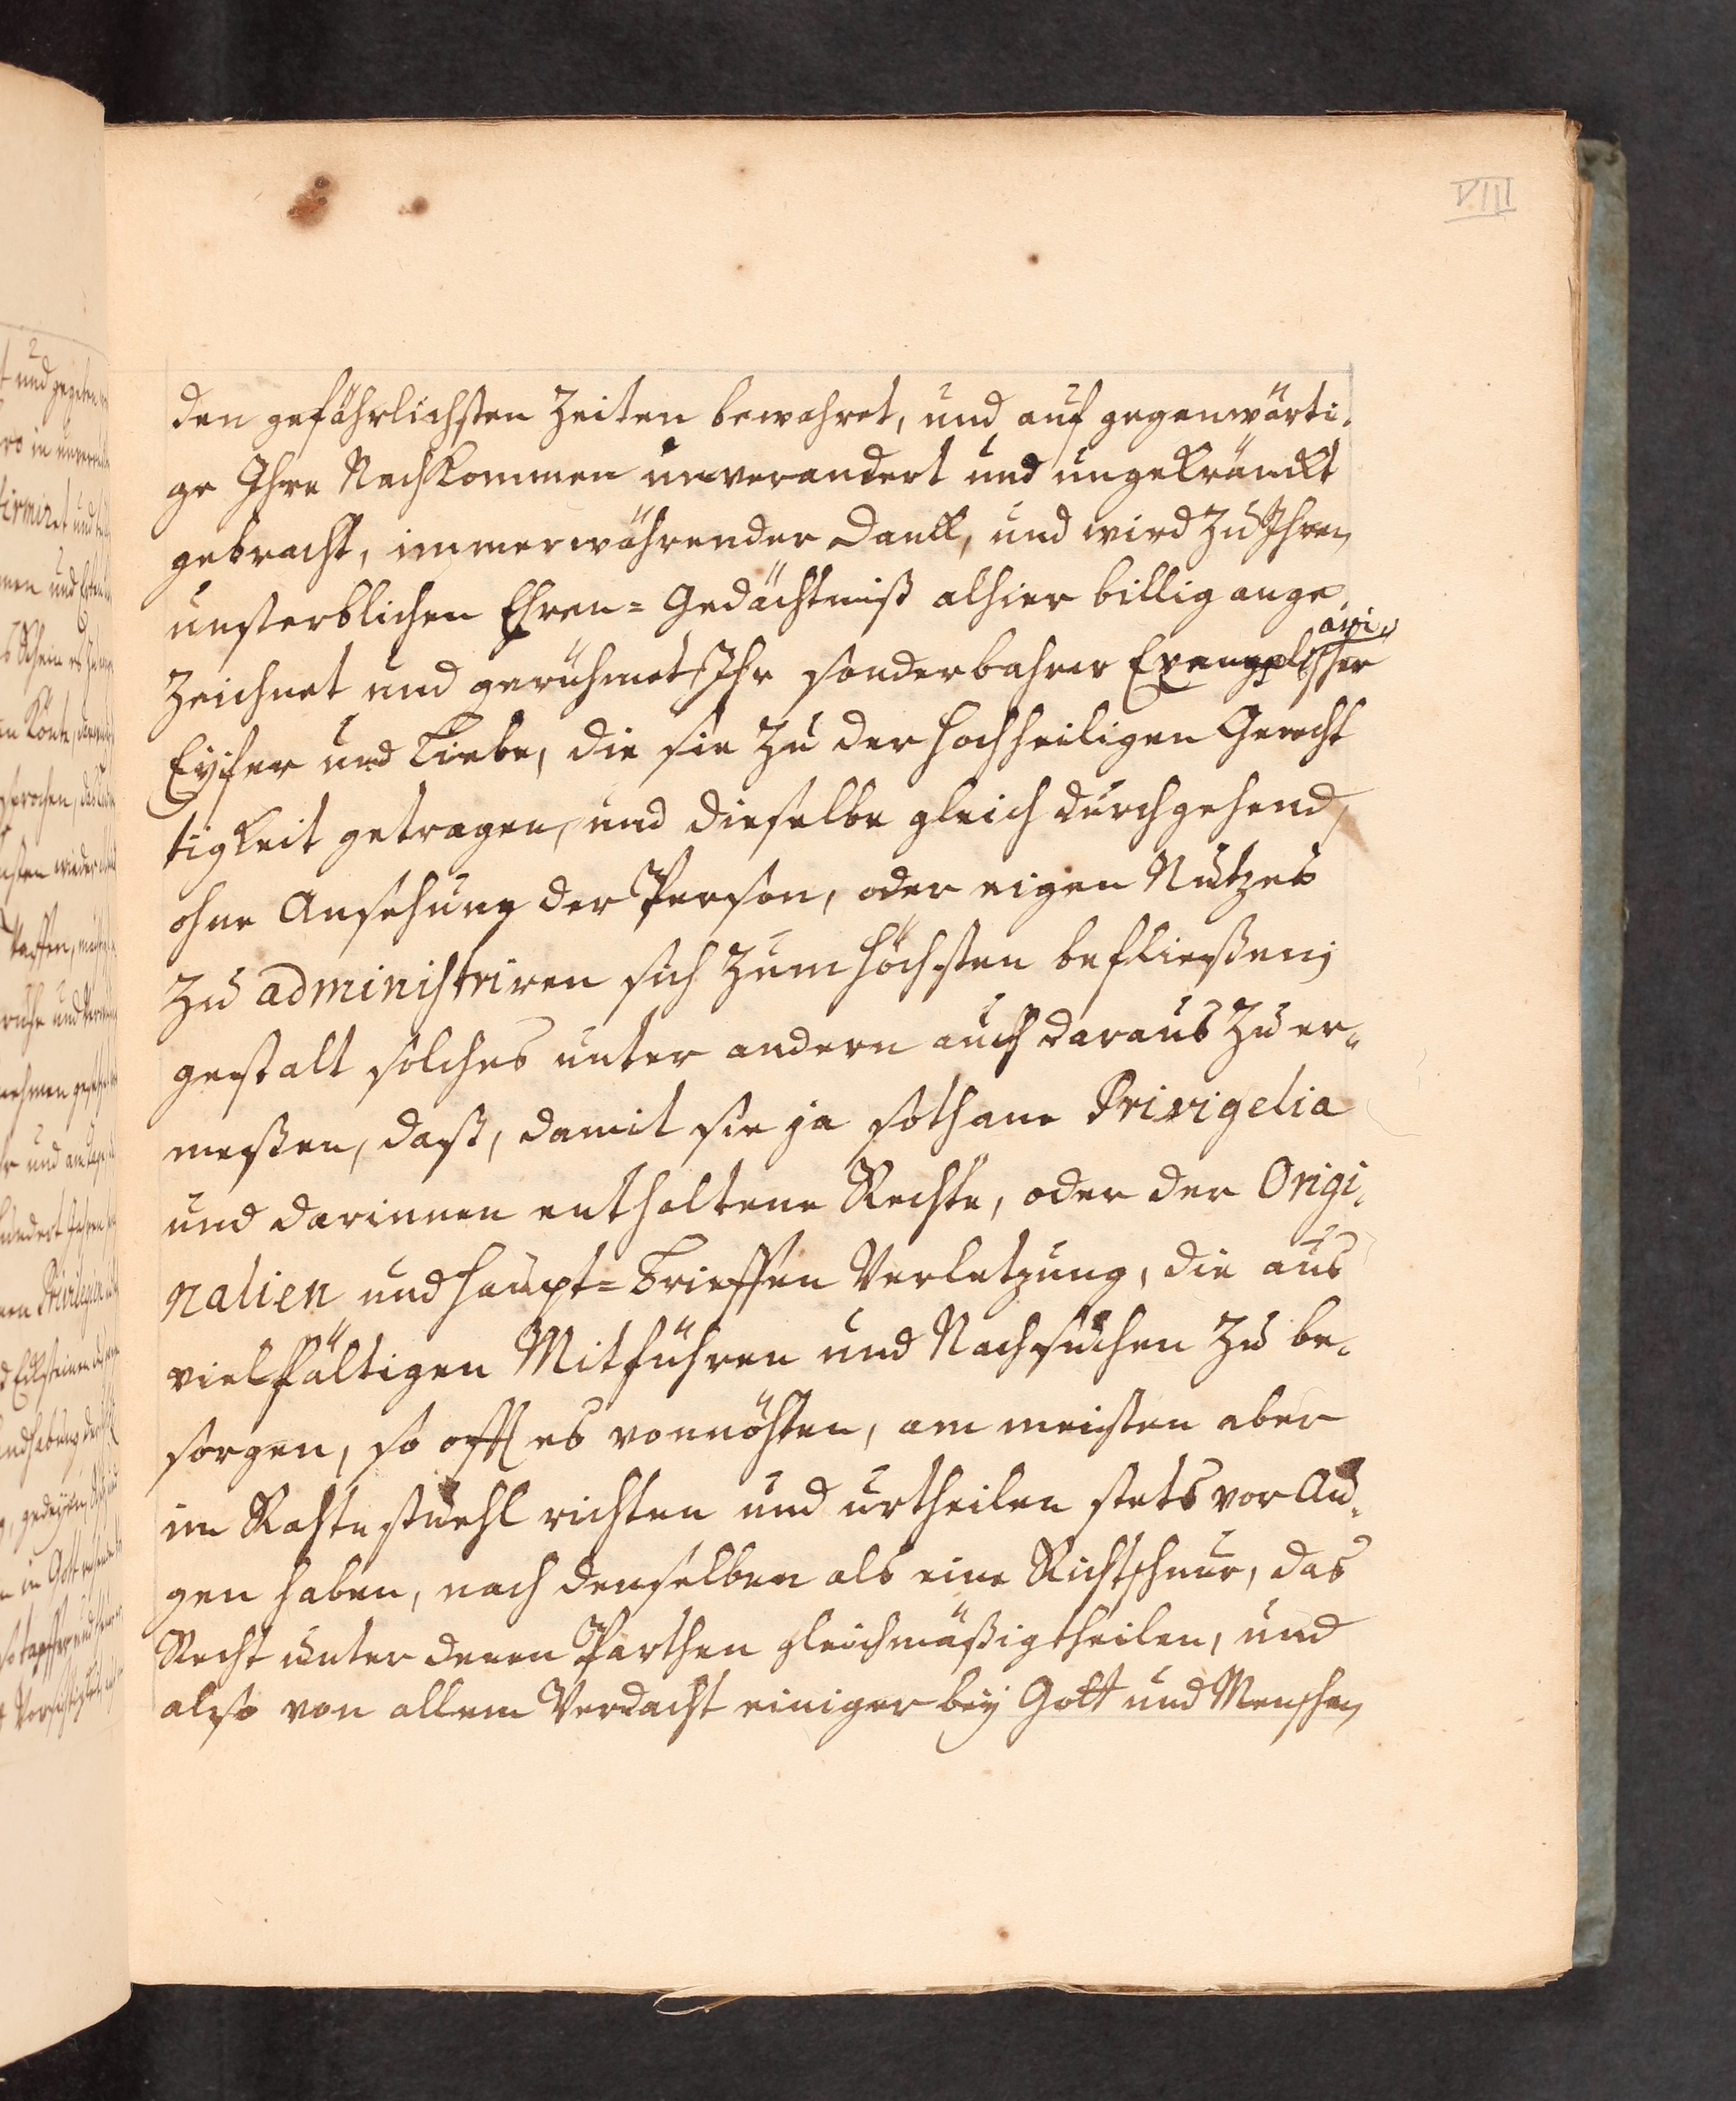 VIII
den gefährlichsten Zeiten bewahret, und auf gegenwärti-
ge Ihre Nachkommen unverandert und ungekränckt
gebracht, immerwährender Danck, und wird zu Ihren
unsterblichen Ehren= Gedächtniß alhier billig ange
zeichnet und gerühmet Ihr sonderbahrer
Eyffer und Liebe, die sie zu der hochheiligen Gerech
tigkeit getragen, und dieselbe gleich durchgehend,
ohne Ansehung der Person, oder eigen Nutzes
zu administriren sich zum höchsten befließen;
gestalt solches unter andern auch daraus zu er-
meßen, daß, damit sie ja sothane Privigelia
und darinnen enthaltene Rechte, oder der Origi-
nalien und Haupt= Brieffen Verletzung, die aus
vielfältigen Mitführen und Nachsuchen zu be-
sorgen, so offt es vonnöhten, am meisten aber
im Rahtestuehl richten und urtheilen stets vor Au-
gen haben, nach denselben als eine Richtschnur, das
Recht unter denen Parthen gleichmäßig theilen, und
also von allem Verdacht einiger bey Gott und Menschen